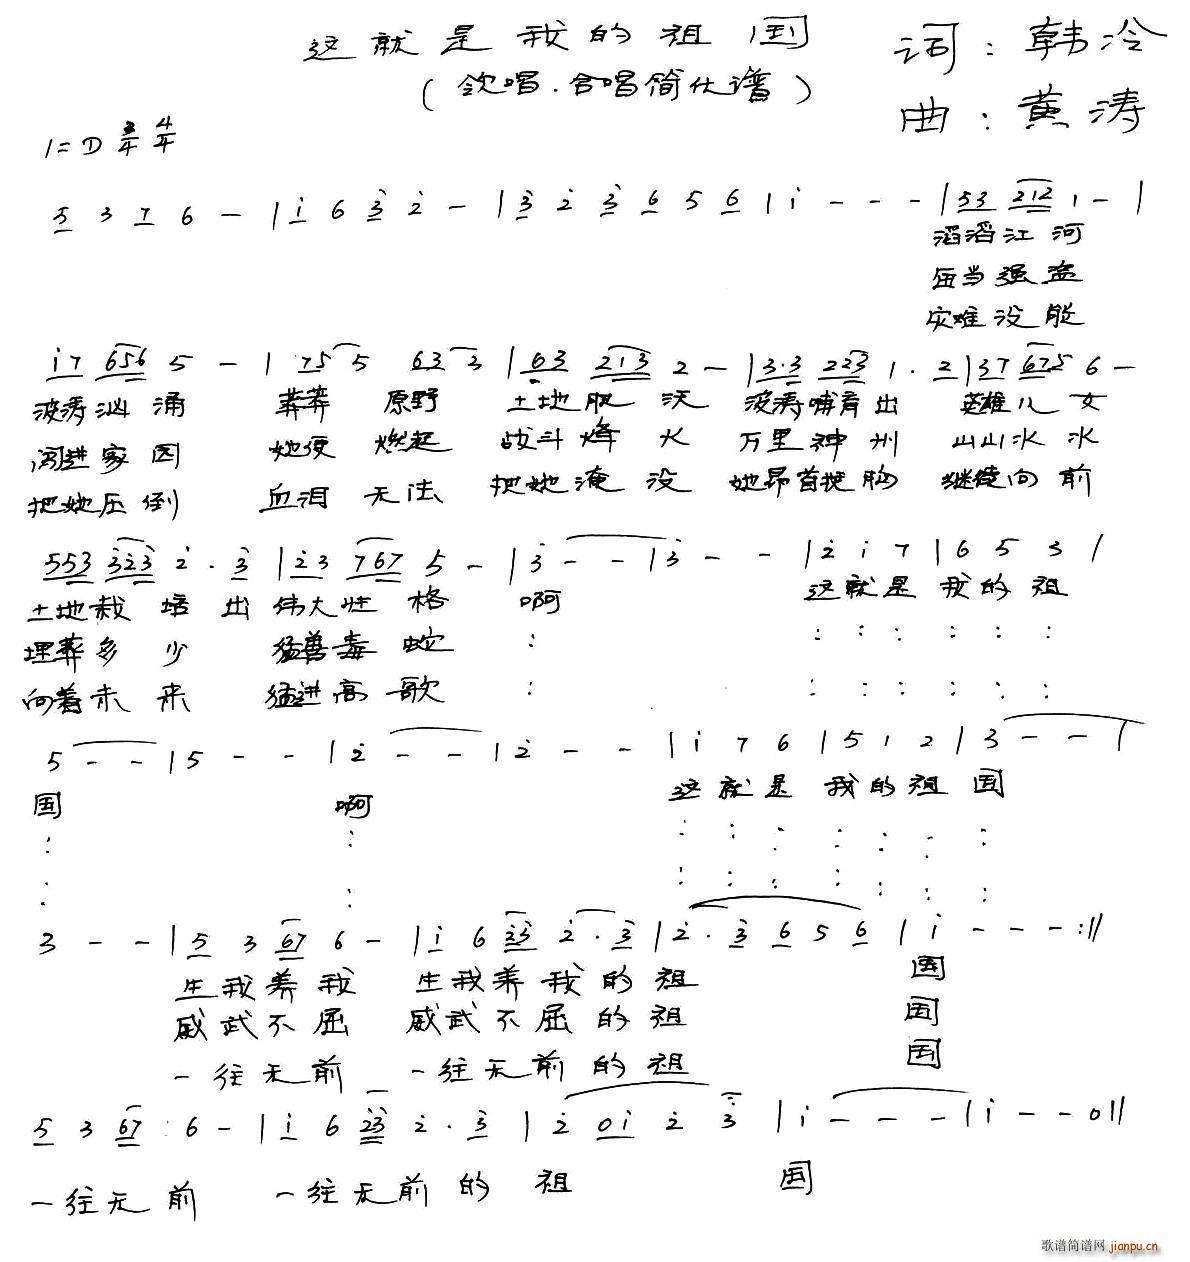 这就是我的祖国
(领唱.合唱简化谱)
词：韩冷
曲：黄涛
1=D 3/4 4/4
5 3 7 6 - | i 6 3 2 - | 3 2 3 6 5 6 | i - - - | 53 212 1 - |
滔滔江河
每当强盗
灾难没能
i7 656 5 - | 75 5 63 3 | 63 213 2 - | 3·3 223 1 · 2 | 37 675 6 -
波涛汹涌 莽莽原野 土地肥沃 波涛哺育出 英雄儿女
闯进家园 她便燃起 战斗烽火 万里神州 山山水水
把她压倒 血泪无法 把她淹没 她昂首挺胸 继续向前
553 323 2 · 3 | 23 767 5 - | 3 - - | 3 - - | 2 i 7 | 6 5 3 |
土地栽培出 伟大性格 啊 这就是我的祖
埋葬多少 猛兽毒蛇
向着未来 猛进高歌
5 - - | 5 - - | 2 - - | 2 - - | i 7 6 | 5 1 2 | 3 - - |
国 啊 这就是我的祖国
3 - - | 5 3 67 6 - | i 6 23 2 · 3 | 2 · 3 6 5 6 | i - - - :||
生我养我 生我养我的祖 国
威武不屈 威武不屈的祖 国
一往无前 一往无前的祖 国
5 3 67 6 - | i 6 23 2 · 3 | 2 0i 2 3 | i - - - | i - - 0 ||
一往无前 一往无前的祖 国
歌谱简谱网 jianpu.cn